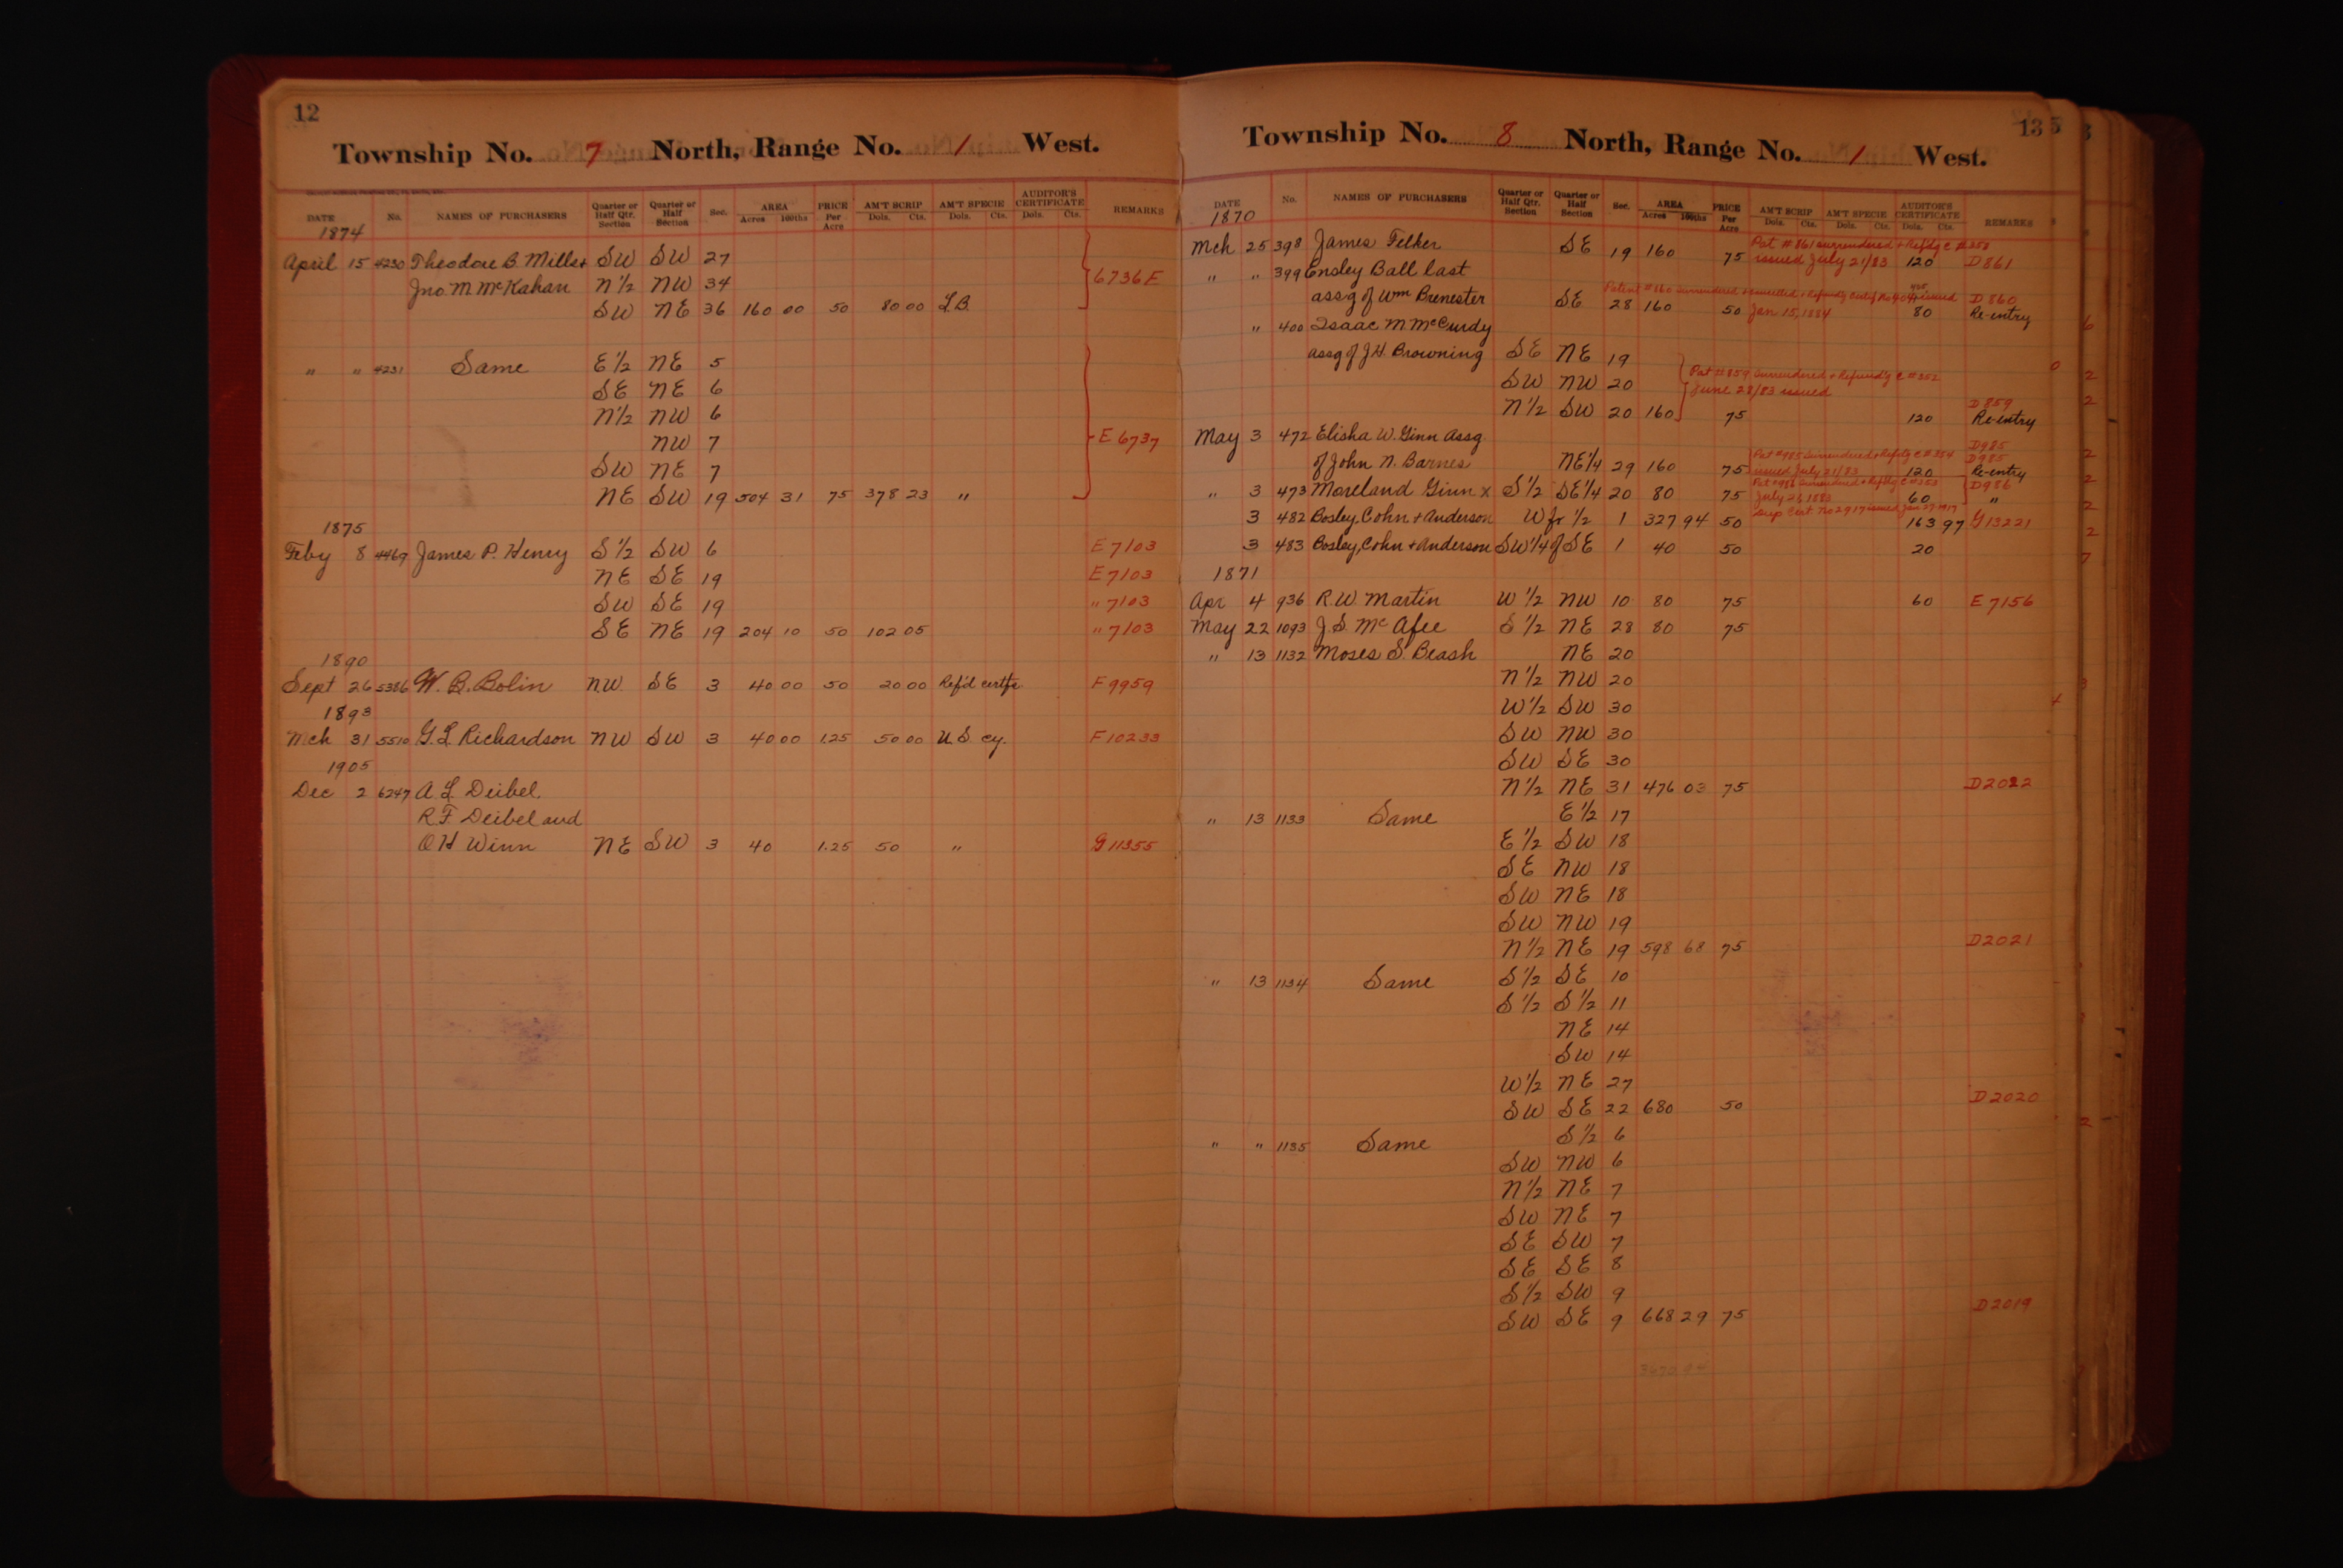 12
Township No. 7 North, Range No. 1 West.
DATE No. NAMES OF PURCHASERS Quarter or Half Qtr. Section Quarter or Half Section Sec. AREA Acres 100ths PRICE Per Acre AM'T SCRIP Dols. Cts. AM'T SPECIE Dols. Cts. AUDITOR'S CERTIFICATE Dols. Cts. REMARKS
1874
April 15 4230 Theodore B. Mills + SW SW 27
Jno. M McKahan N½ NW 34 6736 E
SW NE 36 160 00 50 80 00 L.B.
" " 4231 Same E½ NE 5
SE NE 6
N½ NW 6
NW 7 E 6737
SW NE 7
NE SW 19 504 31 75 378 23 "
1875
Feby 8 4469 James P. Henry S½ SW 6 E 7103
NE SE 19 E 7103
SW SE 19 " 7103
SE NE 19 204 10 50 102 05 " 7103
1890
Sept 26 5386 W. B. Bolin NW SE 3 40 00 50 20 00 Ref'd certfe F 9959
1893
Mch 31 5510 G. L Richardson NW SW 3 40 00 1.25 50 00 U.S. cy. F 10233
1905
Dec 2 6247 A. L Deibel,
R. F. Deibel and
O H Winn NE SW 3 40 1.25 50 " G 11355
13
Township No. 8 North, Range No. 1 West.
DATE No. NAMES OF PURCHASERS Quarter or Half Qtr. Section Quarter or Half Section Sec. AREA Acres 100ths PRICE Per Acre AM'T SCRIP Dols. Cts. AM'T SPECIE Dols. Cts. AUDITOR'S CERTIFICATE Dols. Cts. REMARKS
1870
Pat # 861 surrendered + Refdg C # 353
Mch 25 398 James Felker SE 19 160 75 issued July 21/83 120 D 861
" " 399 Ensley Ball last
Patent # 160 surrendered + cancelled + Refundg Certif No 404 issued D 860
assg of Wm Brenester SE 28 160 50 Jan 15, 1884 80 Re-entry
" 400 Isaac M McCurdy
assg of J.H. Browning SE NE 19
SW NW 20 Pat # 859 surrendered + Refund'g C # 352
June 28/83 issued
D 859
N½ SW 20 160 75 120 Re-entry
May 3 472 Elisha W. Ginn Assg D985
Pat #985 surrendered + Refdg C # 354 D985
of John N. Barnes NE¼ 29 160 75 issued July 21/83 120 Re-entry
Pat #986 surrendered + Refdg C #353 D986
" 3 473 Moreland Ginn x S½ SE¼ 20 80 75 July 23, 1883 60 "
Dup Cert No 2917 issued Jan 27 1917
3 482 Bosley, Cohn + Anderson W fr ½ 1 327 94 50 163 97 G 13221
3 483 Bosley, Cohn + Anderson SW¼ of SE 1 40 50 20
1871
Apr 4 936 R. W. Martin W½ NW 10 80 75 60 E 7156
May 22 1093 J. S. Mc Afee S½ NE 28 80 75
" 13 1132 Moses S. Beash NE 20
N½ NW 20
W½ SW 30
SW NW 30
SW SE 30
N½ NE 31 476 03 75 D2022
" 13 1133 Same E½ 17
E½ SW 18
SE NW 18
SW NE 18
SW NW 19
N½ NE 19 598 68 75 D2021
" 13 1134 Same S½ SE 10
S½ S½ 11
NE 14
SW 14
W½ NE 27
SW SE 22 680 50 D2020
" " 1135 Same S½ 6
SW NW 6
N½ NE 7
SW NE 7
SE SW 7
SE SE 8
S½ SW 9
SW SE 9 668 29 75 D2019